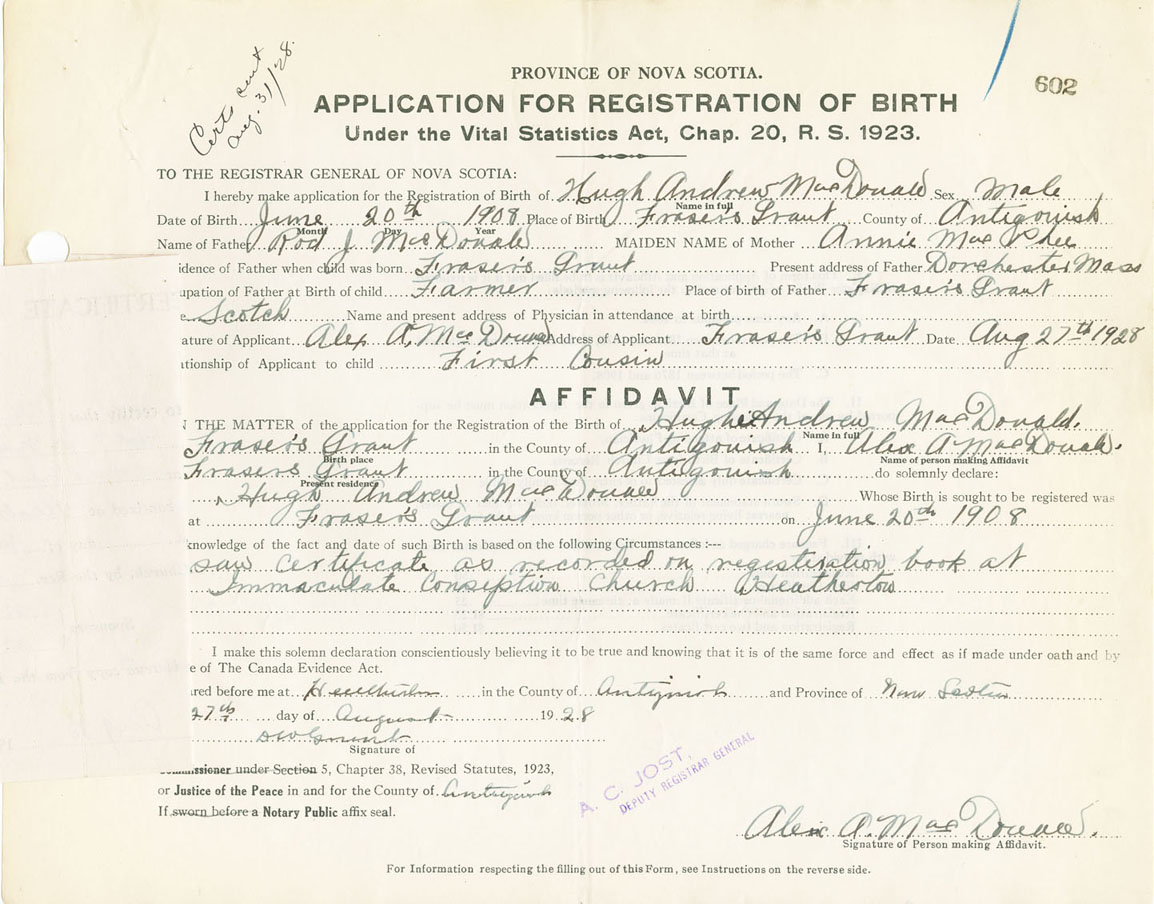 Certs sent
Aug. 31/28.
602
PROVINCE OF NOVA SCOTIA.
APPLICATION FOR REGISTRATION OF BIRTH
Under the Vital Statistics Act, Chap. 20, R. S. 1923.
TO THE REGISTRAR GENERAL OF NOVA SCOTIA:
I hereby make application for the Registration of Birth of Hugh Andrew MacDonald Sex Male
Name in full
Date of Birth June 20th 1908 Place of Birth Fraser's Grant County of Antigonish
Month Day Year
Name of Father Rod J. MacDonald MAIDEN NAME of Mother Annie MacPhee
idence of Father when child was born Fraser's Grant Present address of Father Dorchester Mass
upation of Father at Birth of child Farmer Place of birth of Father Fraser's Grant
e Scotch Name and present address of Physician in attendance at birth
ature of Applicant Alex A. MacDonald Address of Applicant Fraser's Grant Date Aug 27th 1928
ationship of Applicant to child First Cousin
AFFIDAVIT
N THE MATTER of the application for the Registration of the Birth of Hugh Andrew MacDonald.
Name in full
Fraser's Grant in the County of Antigonish I, Alex A MacDonald.
Birth place Name of person making Affidavit
Fraser's Grant in the County of Antigonish do solemnly declare:
Present residence
Hugh Andrew MacDonald Whose Birth is sought to be registered was
at Fraser's Grant on June 20th 1908
knowledge of the fact and date of such Birth is based on the following Circumstances :—
saw certificate as recorded on registration book at
Immaculate Conseption Church Heatherton
I make this solemn declaration conscientiously believing it to be true and knowing that it is of the same force and effect as if made under oath and by
e of The Canada Evidence Act.
red before me at Heatherton in the County of Antigonish and Province of Nova Scotia
27th day of August 1928
Signature of
Commissioner under Section 5, Chapter 38, Revised Statutes, 1923,
or Justice of the Peace in and for the County of Antigonish
If sworn before a Notary Public affix seal.
A. C. JOST,
DEPUTY REGISTRAR GENERAL
Alex A. MacDonald.
Signature of Person making Affidavit.
For Information respecting the filling out of this Form, see Instructions on the reverse side.